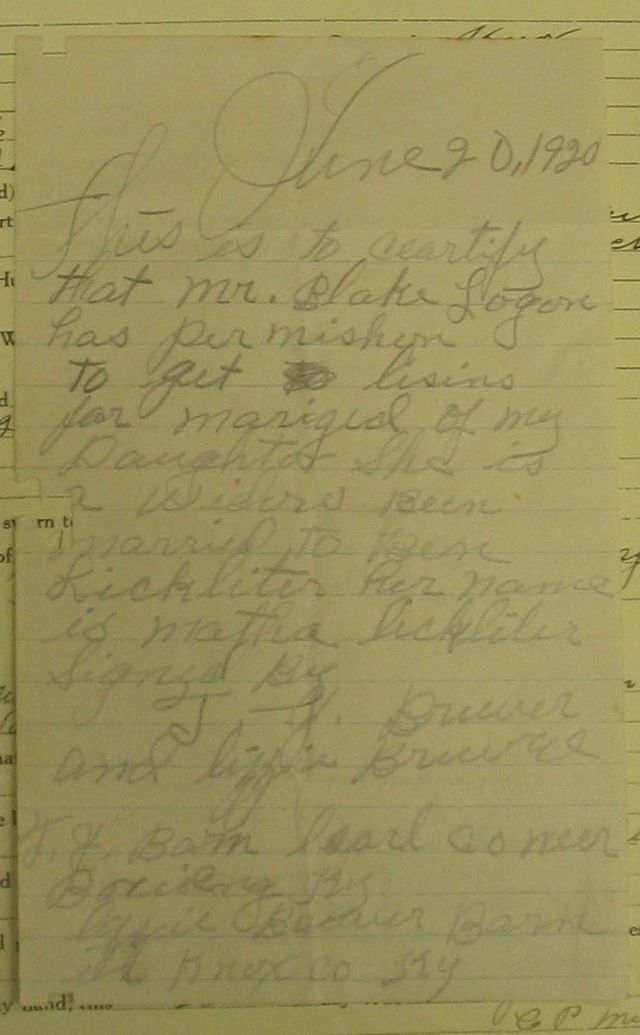 June 20, 1920
This is to ceartify
that mr. Blake Logon
has permishen
to get lisins
for mariged of my
Daughter She is
a Widers Been
married to Ben
Lickliter her name
is matha lickliter
Signed By
J. Y. Bruwer
and lizzie Bruwer
Barn
Ky
Barn
Knox co Ky